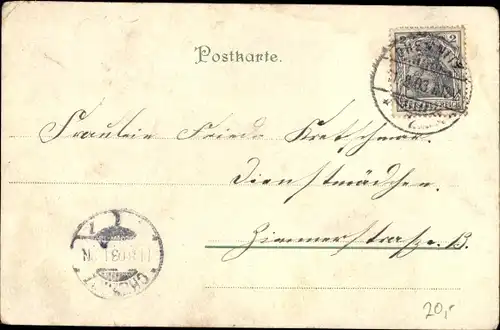 Postkarte.
2
CHEMNITZ
Fräulein Frieda Kretschmar.
Dienstmädchen.
Zimmerstrasse. 13.
20,-